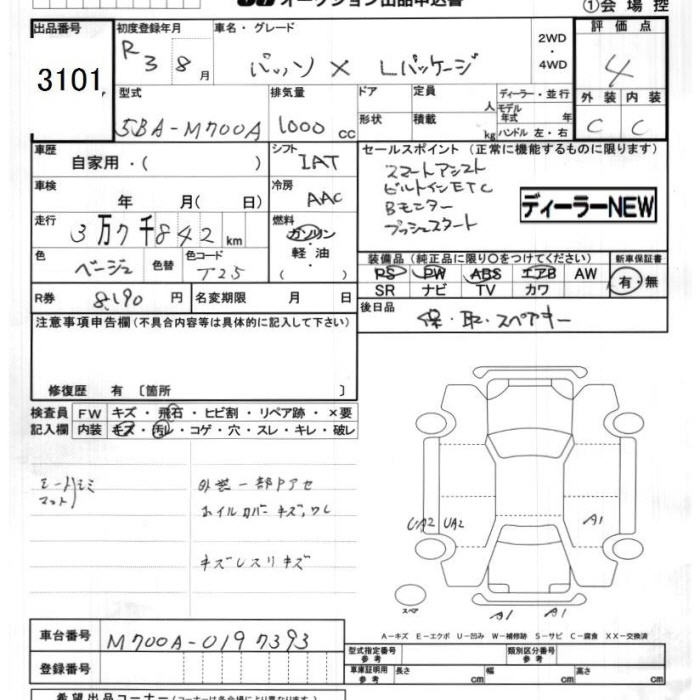 オークション出品申込書 ①会場控
出品番号 初度登録年月 車名・グレード 評価点
3101 R3 8月 パッソ X Lパッケージ 2WD・4WD 4
型式 排気量 ドア 定員 人 ディーラー・並行 外装 内装
5BA-M700A 1000cc 形状 積載 kg モデル年式 年 ハンドル 左・右 C C
車歴 自家用・( ) シフト IAT セールスポイント (正常に機能するものに限ります)
車検 年 月( 日) 冷房 AAC
スマートアシスト
ビルトインETC
Bモニター
プッシュスタート
ディーラーNEW
走行 3万7千842km 燃料 ガソリン・軽油( )
色 ベージュ 色替 色コード T25
装備品 (純正品に限り○をつけてください) 新車保証書
PS PW ABS エアB AW 有・無
SR ナビ TV カワ
R券 8190円 名変期限 月 日
後日品 保・取・スペアキー
注意事項申告欄 (不具合内容等は具体的に記入して下さい)
修復歴 有 〔箇所 〕
検査員 FW キズ・飛石・ヒビ割・リペア跡・×要
記入欄 内装 キズ・汚レ・コゲ・穴・スレ・キレ・破レ
マット
外装一部Pアセ
ホイルカバーキズ、ワレ
UA2 UA2 A1
キズレスリキズ
スペア A1 A1
A-キズ E-エクボ U-凹み W-補修跡 S-サビ C-腐食 XX-交換済
車台番号 M700A-0197393
型式指定番号 参考 類別区分番号 参考
登録番号 車庫証明用 参考 長さ cm 幅 cm 高さ cm
希望出品コーナー (コーナーは各会場により異なります。)